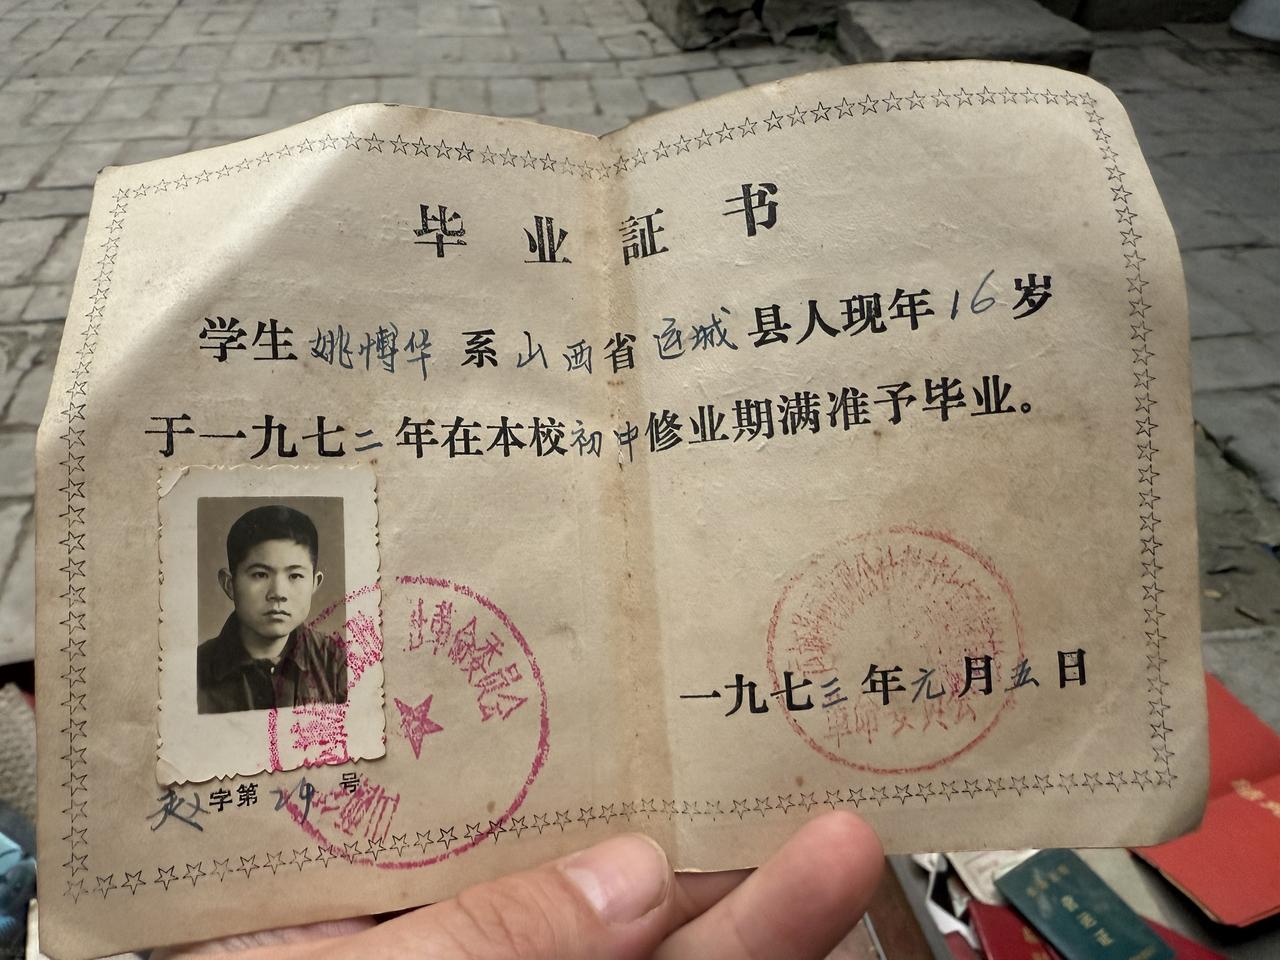 毕业証书
学生姚博华系山西省运城县人现年16岁
于一九七二年在本校初中修业期满准予毕业。
委员会
一九七三年元月五日
革命委员会
赵字第29号